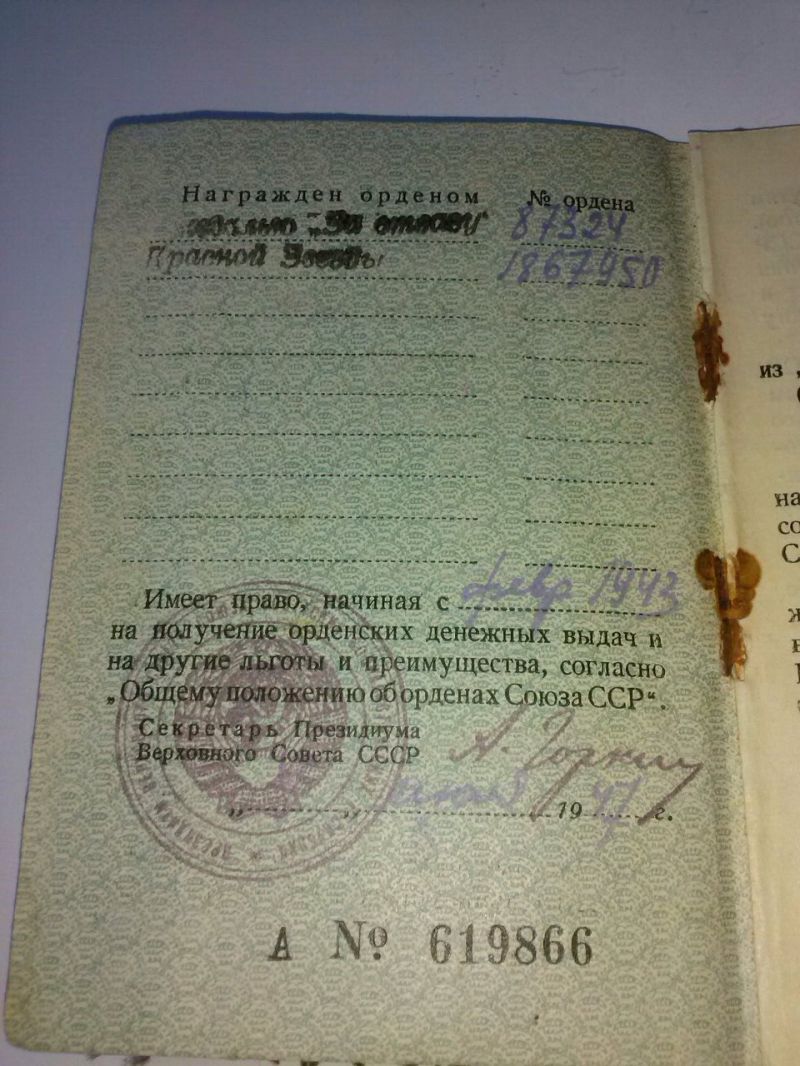 Награжден орденом № ордена
„За отвагу“ 87324
Красной Звезды 1867950
Имеет право, начиная с февр 1943
на получение орденских денежных выдач и
на другие льготы и преимущества, согласно
„Общему положению об орденах Союза ССР“.
Секретарь Президиума
Верховного Совета СССР А. Горкин
„ „ 1947 г.
А № 619866
из „
на
со
С